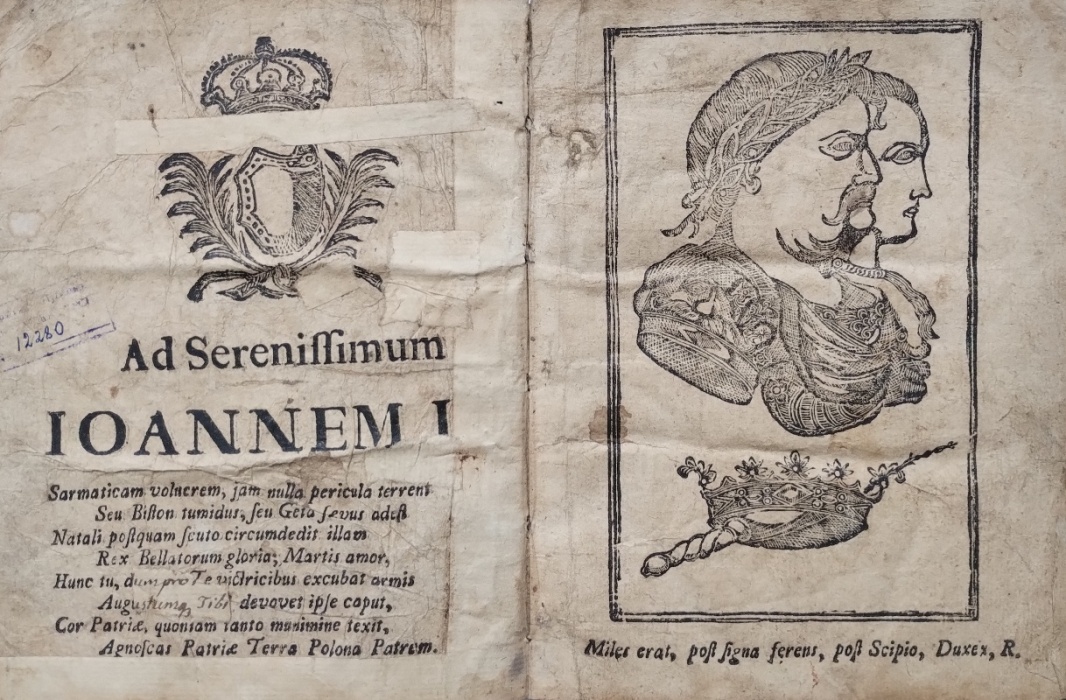 12280
Ad Sereniſſimum
IOANNEM I
Sarmaticam volucrem, jam nulla pericula terrent
Seu Biſton tumidus, ſeu Geta ſævus adeſt
Natali poſtquam ſcuto circumdedit illam
Rex Bellatorum gloria; Martis amor,
Hunc tu, dum pro Te victricibus excubat armis
Auguſtumq, Tibi devovet ipſe caput,
Cor Patriæ, quoniam tanto munimine texit,
Agnoſcas Patriæ Terra Polona Patrem.
Miles erat, poſt ſigna ferens, poſt Scipio, Duxex, R.